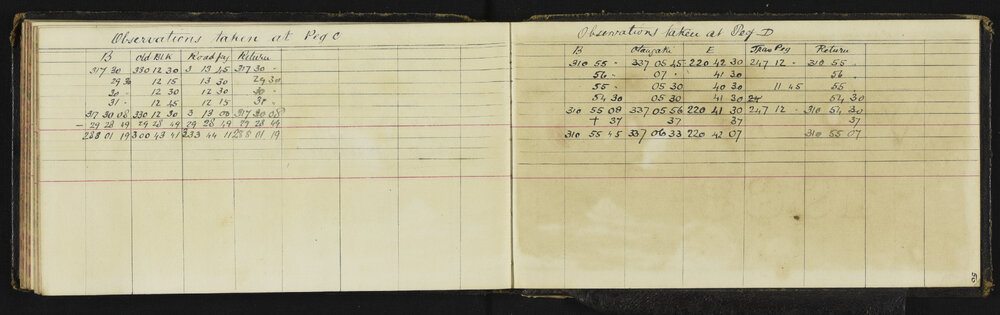 Observations taken at Peg C
B Old Blk Road peg Return
317 30 " 330 12 30 3 13 45 317 30 "
29 30 12 15 13 30 29 30
30 " 12 30 12 30 30 "
31 " 12 45 12 15 31 "
317 30 08 330 12 30 3 13 00 317 30 08
- 29 28 49 29 28 49 29 28 49 29 28 49
288 01 19 300 43 41 333 44 11 288 01 19
Observations taken at Peg D
B E Trav Peg Return
310 55 " 337 05 45 220 42 30 247 12 " 310 55 "
56 " 07 " 41 30 56 "
55 " 05 30 40 30 11 45 55
54 30 05 30 41 30 54 30
310 55 08 337 05 56 220 41 30 247 12 " 310 54 30
+ 37 37 37 37
310 55 45 337 06 33 220 42 07 310 55 07